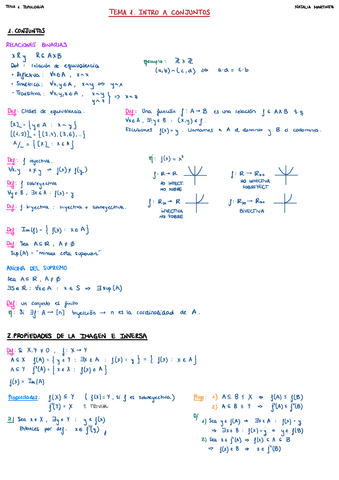 TEMA 1 TOPOLOGÍA
NATALIA MARTÍNEZ
TEMA 1. INTRO A CONJUNTOS
1. CONJUNTOS
RELACIONES BINARIAS
x R y R ⊆ A×B
Def: relación de equivalencia
• Reflexiva: ∀x∈A, x~x
• Simétrica: ∀x,y∈A, x~y ⇔ y~x
• Transitiva: ∀x,y,z∈A, x~y
y~z } ⇒ x~z
ejemplo: ℤ×ℤ
(a,b)~(c,d) ⇔ a·d = c·b
Def: Clases de equivalencia.
[x]~ = {y∈A : x~y}
A/~ = {[x] : x∈A}
Def: Una función f: A→B es una relación f ⊆ A×B t.q.
∀x∈A, ∃!y∈B : (x,y)∈f.
Escribimos f(x)=y. Llamamos a A el dominio y B el codominio.
Def: f inyectiva.
∀x,y : x≠y ⇒ f(x)≠f(y)
Def: f sobreyectiva
∀y∈B, ∃x∈A : f(x)=y
Def: f biyectiva: inyectiva + sobreyectiva.
Ej: f(x) = x²
f: ℝ→ℝ
NO INYECT.
NO SOBRE
NO INYECTIVA
SOBREYECT
INYECTIVA
NO SOBRE
BIYECTIVA
Def: Im(f) = {f(x) : x∈A}
Def: Sea A⊆ℝ, A≠∅
Sup(A) = "mínima cota superior"
AXIOMA DEL SUPREMO
Sea A⊆ℝ, A≠∅
∃S∈ℝ : ∀x∈A : x≤S ⇒ ∃ sup(A)
Def: un conjunto es finito
si ∃ f: A→[n] biyección → n es la cardinalidad de A.
2. PROPIEDADES DE LA IMAGEN E INVERSA
Def: Si X,Y≠∅, f: X→Y
A⊆X f(A) = {y∈Y : ∃x∈A : f(x)=y} = {f(x) : x∈A}
A⊆Y f⁻¹(A) = {x∈X : f(x)∈A}
f(X) = Im(A)
Propiedades: f(X) ⊆ Y (f(X)=Y, si f es sobreyectiva)
f⁻¹(Y) = X TRIVIAL
Sea x∈X, ∃y∈Y : y=f(x)
Entonces por def. x∈f⁻¹(y)
Prop: 1) A⊆B⊆X ⇒ f(A)⊆f(B)
2) A⊆B⊆Y ⇒ f⁻¹(A)⊆f⁻¹(B)
1) Sea y∈f(A) ⇒ ∃x∈A : f(x)=y
⇒ ∃x∈B : f(x)=y ⇒ y∈f(B)
2) Sea x∈f⁻¹(A) ⇒ f(x)∈A⊆B
⇒ f(x)∈B ⇒ x∈f⁻¹(B)